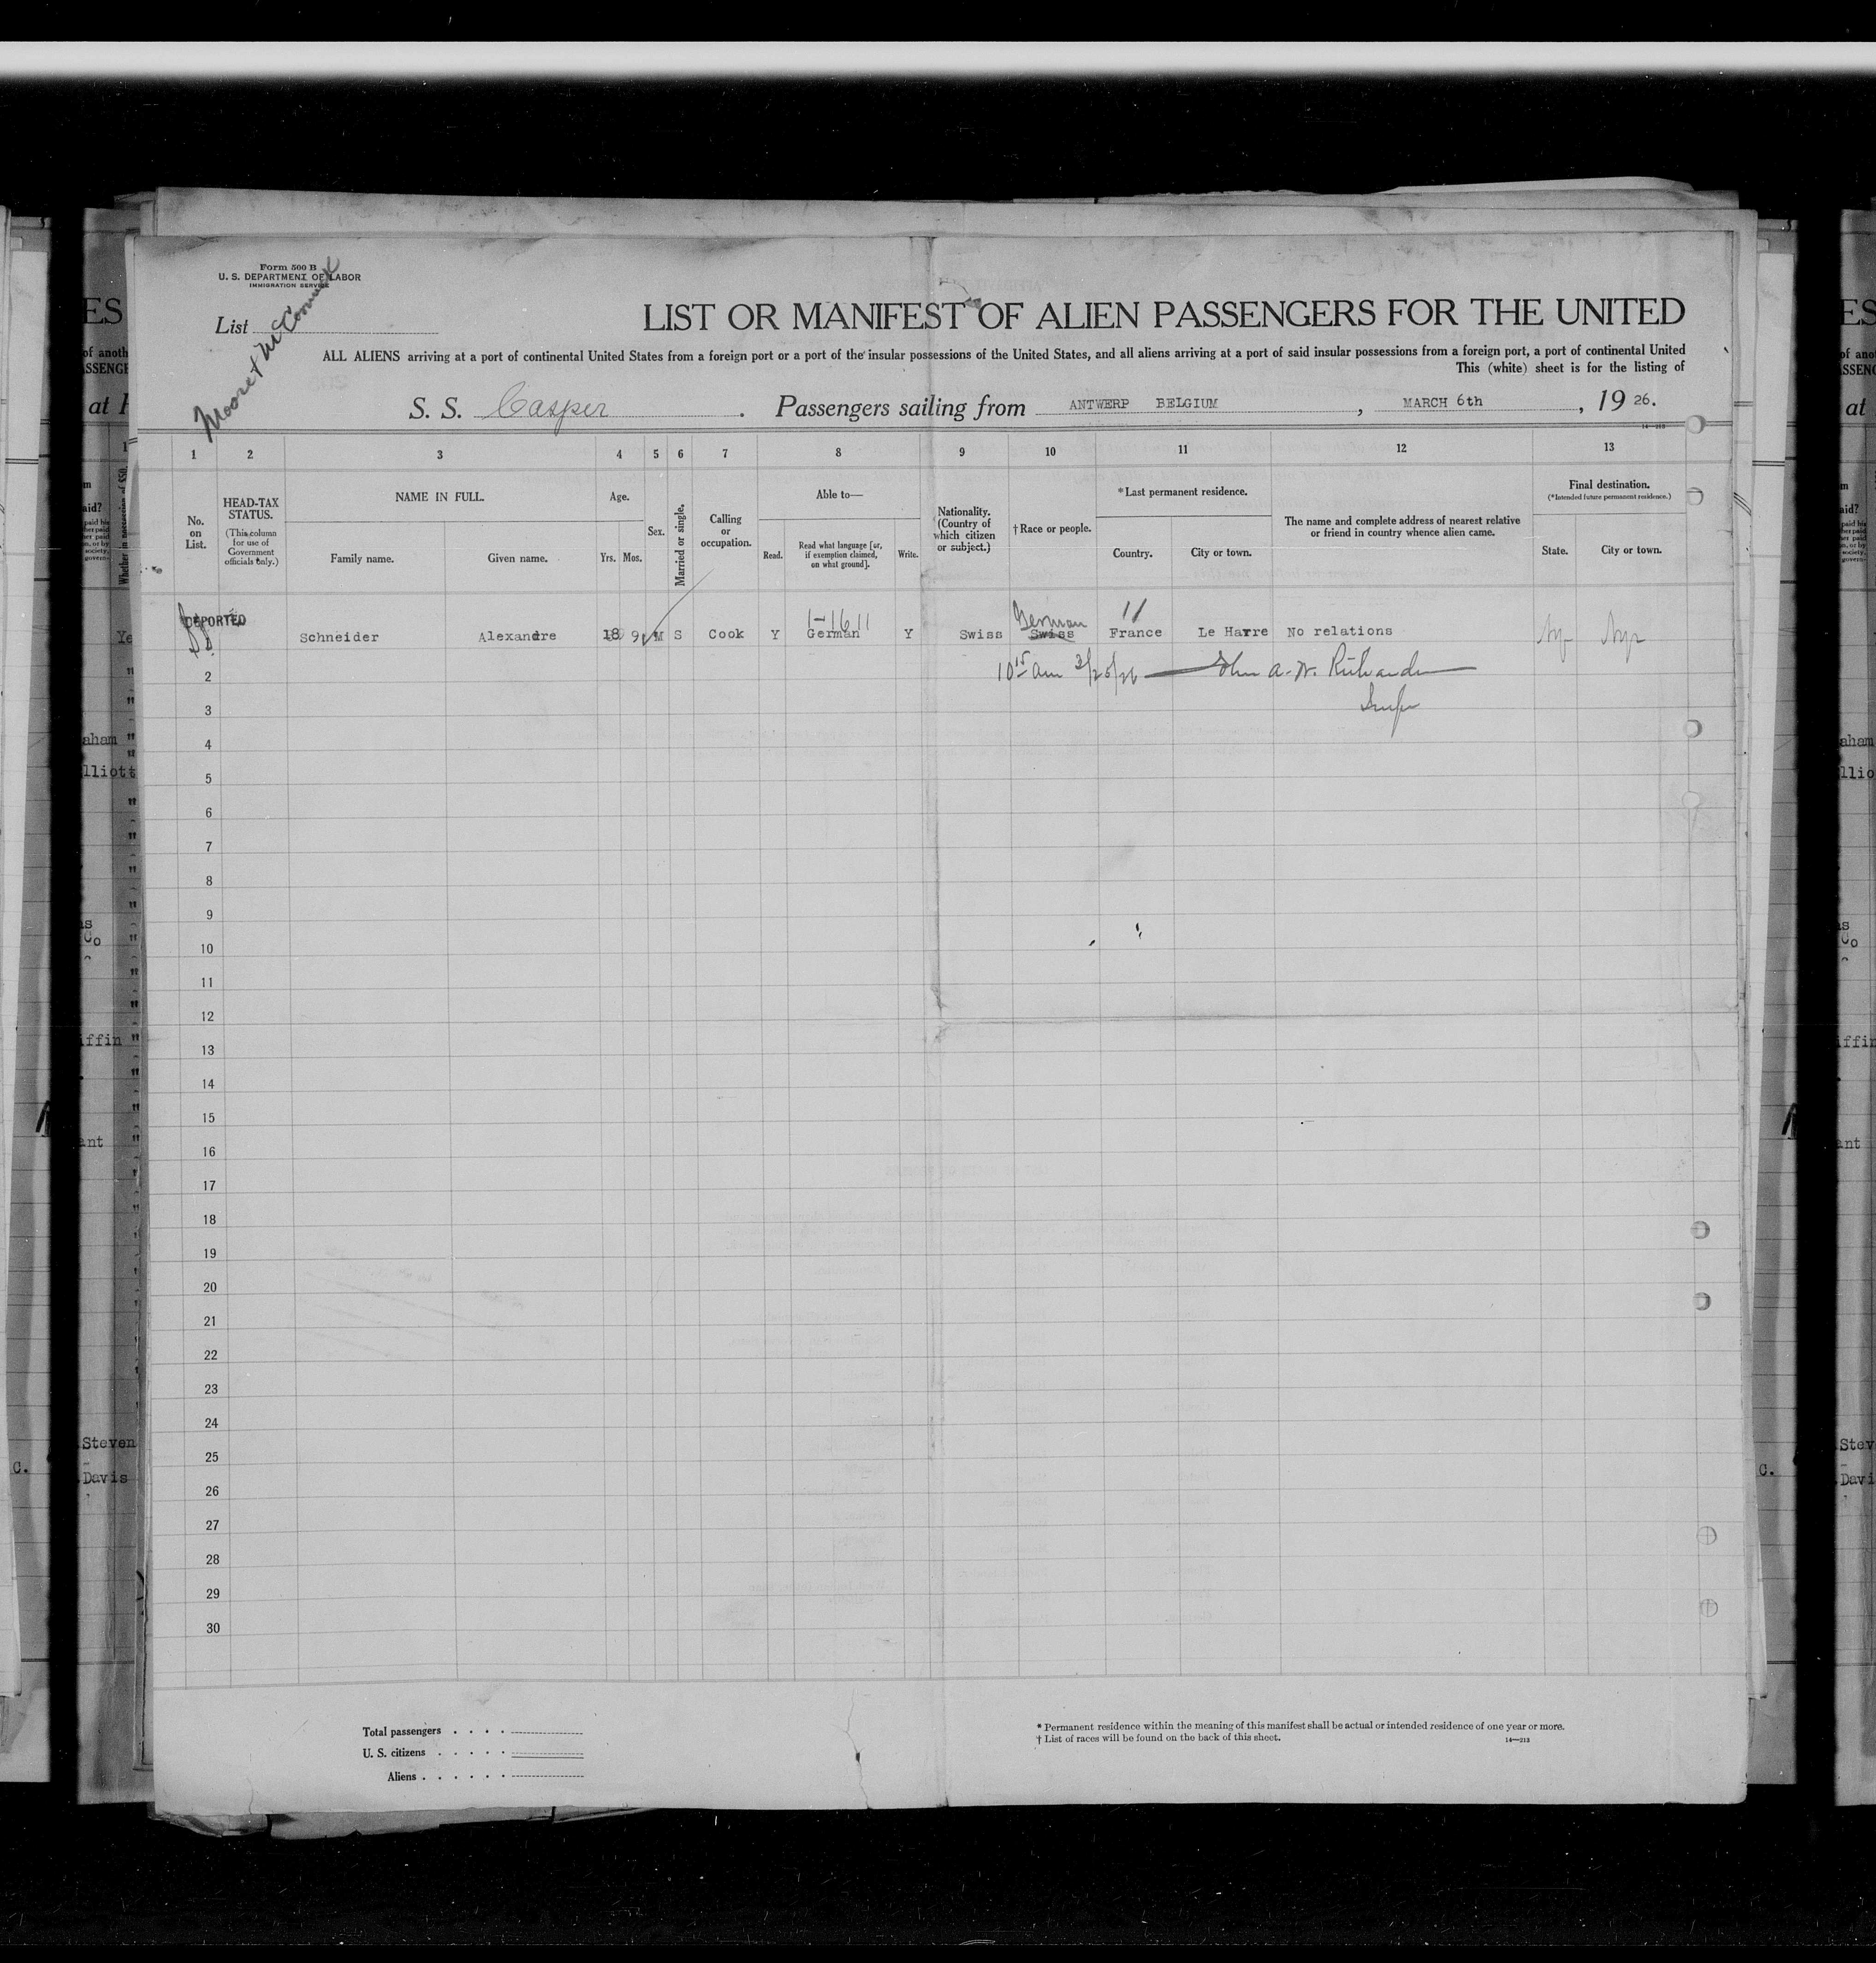 Form 500 B
U. S. DEPARTMENT OF LABOR
IMMIGRATION SERVICE
Moore & McCormack
List
LIST OR MANIFEST OF ALIEN PASSENGERS FOR THE UNITED
ALL ALIENS arriving at a port of continental United States from a foreign port or a port of the insular possessions of the United States, and all aliens arriving at a port of said insular possessions from a foreign port, a port of continental United
This (white) sheet is for the listing of
S. S. Casper . Passengers sailing from ANTWERP BELGIUM , MARCH 6th , 19 26.
14—213
1 2 3 4 5 6 7 8 9 10 11 12 13
No. on List.
HEAD-TAX STATUS.
(This column for use of Government officials only.)
NAME IN FULL.
Family name. Given name.
Age.
Yrs. Mos.
Sex.
Married or single.
Calling or occupation.
Able to—
Read. Read what language [or, if exemption claimed, on what ground]. Write.
Nationality. (Country of which citizen or subject.)
†Race or people.
*Last permanent residence.
Country. City or town.
The name and complete address of nearest relative or friend in country whence alien came.
Final destination.
(*Intended future permanent residence.)
State. City or town.
DEPORTED
1-1611 German 11
Schneider Alexandre 18 9 M S Cook Y German Y Swiss Swiss France Le Havre No relations Ny Ny
10 15 am 3/25/26 John A. W.
2
3
4
5
6
7
8
9
10
11
12
13
14
15
16
17
18
19
20
21
22
23
24
25
26
27
28
29
30
Total passengers . . . .
U. S. citizens . . . . .
Aliens . . . . . .
* Permanent residence within the meaning of this manifest shall be actual or intended residence of one year or more.
† List of races will be found on the back of this sheet.
14—213